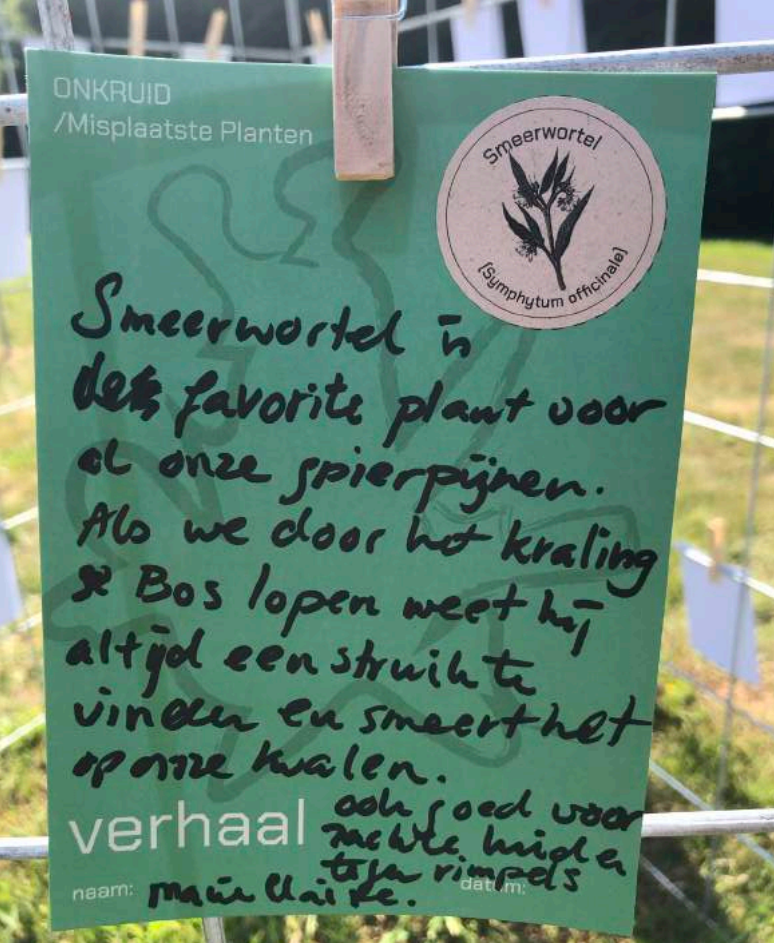 ONKRUID
/Misplaatste Planten
Smeerwortel
(Symphytum officinale)
Smeerwortel is
de favorite plant voor
al onze spierpijnen.
Als we door het kraling
se Bos lopen weet hij
altijd een struik te
vinden en smeert het
op onze kwalen.
ook goed voor
zachte huid en
tegen rimpels
verhaal
naam: Marie Claire.
datum: